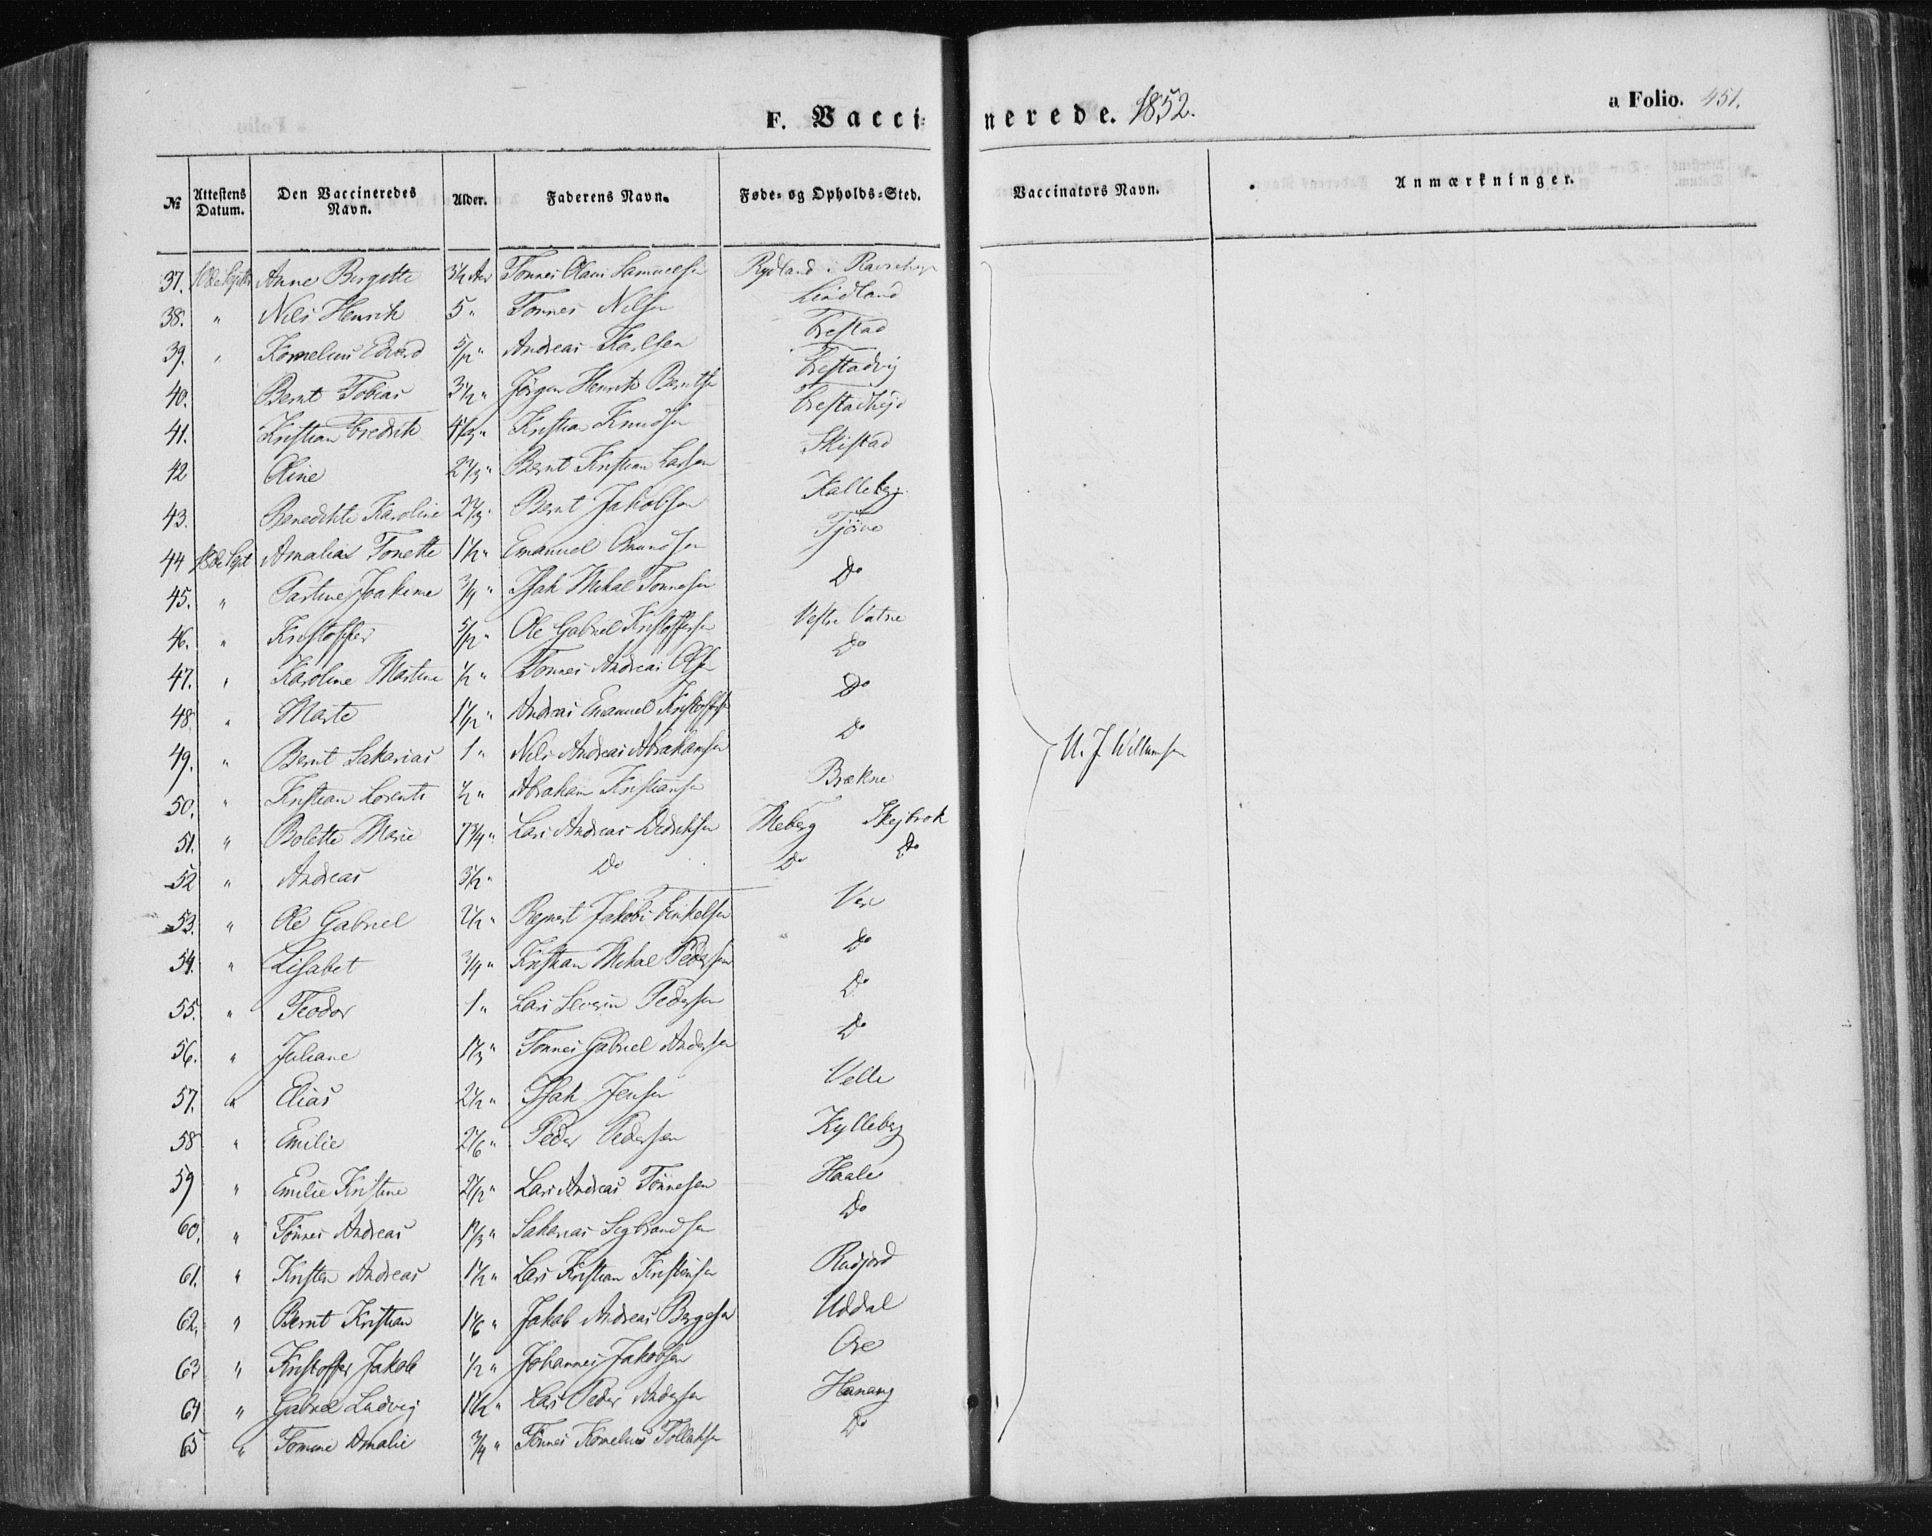 F. Vaccinerede. 1852. a Folio. 451.
№ Attestens Datum. Den Vaccineredes Navn. Alder. Faderens Navn. Føde- og Opholds-Sted. Vaccinators Navn. Anmærkninger.
37. Anne Birgitte 3/4 Aar Tonnes Olaus Samuelsen Rydland
38. " Nils Henrik 5 " Tonnes Nilsen Lindland
39. " Kornelius Edvard 5/12 " Andreas Karlsen Frestad
40. Bernt Tobias 3 1/2 " Jörgen Henrik Berntsen Frestadvig
41. Kristian Fredrik 4 1/3 " Kristian Knudsen
42 Oline 2 2/3 " Bernt Kristian Larsen Skistad
43. Benedikte Karoline 2 2/3 " Bernt Jakobsen Kalleberg
44 18de Sept Amalia Tonette 1 1/2 " Emanuel Omundsen Tjörve
45. " Joakime 3/4 " Isak Mikal Tonnesen Do
46. " Kristoffer 5/12 " Ole Gabriel Kristoffersen Vestre Vatne
47. " Karoline Martine 1/2 " Tonnes Andreas Olsen Do
48 " Marte 1 1/12 " Andreas Emanuel Kristoffersen Do
49. " Bernt Sakarias 1 " Nils Andreas Abrahamsen Do
50. " Kristian Lorents 1/2 " Abraham Kristiansen Brækne
51. " Bolette Marie 7 3/4 " Lars Andreas Didriksen Meberg Skejbrok
52 " Andreas 3 1/2 " Do Do Do
53. " Ole Gabriel 2 1/2 " Reinert Jakob Terkelsen Vere
54. " Lisabet 3/4 " Kristian Mikal Pedersen Do
55. " Teodor 1 " Lars Severin Pedersen Do
56. " Juliane 1 2/3 " Tonnes Gabriel Andersen Do
57. " Elias 2 1/2 " Isak Jensen Velle
58 " Emilie 2 1/6 " Peder Pedersen Kylleberg
59 " Emilie Kristine 2 1/12 " Lars Andreas Tönnesen Haale
60. " Tönnes Andreas 1 1/3 " Sakarias Sigbrandsen Do
61. " Kristen Andreas 1 1/2 " Lars Kristian Kristensen Rudjord
62. " Bernt Kristian 1 1/6 " Jakob Andreas Bergesen Uddal
63 " Kristoffer Jakob 1/2 " Johannes Jakobsen Ore
64 " Gabriel Ludvig 1 1/2 " Lars Peder Andersen Hanang
65 " Tomine Amalie 3/4 " Tönnes Kornelius Tollaksen Do
U. J. Willumsen